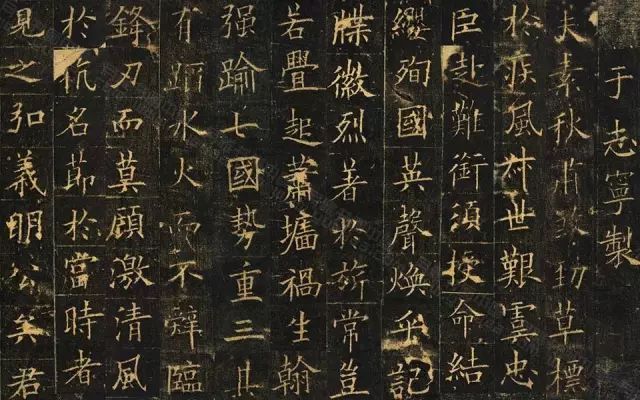 于志寧製
夫素秋肅煞勁草標
於疾風叔世艱虞忠
臣赴難銜須授命結
纓殉國英聲煥乎記
牒徽烈著於旂常豈
若舋起蕭墻禍生翰
强踰七國勢重三
有蹈水火而不辭臨
鋒刃而莫顧激清風
於抗名節於當時者
見之弘義明公矣君